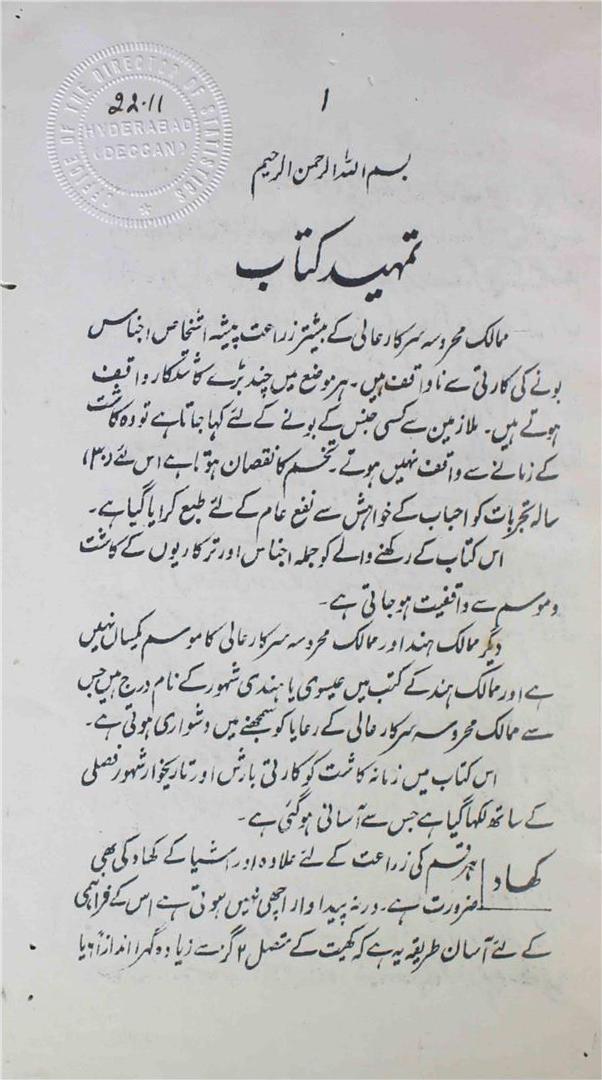 OFFICE OF THE DIRECTOR OF STATISTICS
22.11
HYDERABAD
(DECCAN)
۱
بسم اللہ الرحمن الرحیم
تمہید کتاب
ممالک محروسہ سرکار عالی کے بیشتر زراعت پیشہ اشخاص اجناس
بونے کی کارتی سے ناواقف ہیں۔ ہر موضع میں چند بڑے کاشتکار واقف
ہوتے ہیں۔ ملازمین سے کسی جنس کے بونے کے لئے کہا جاتا ہے تو وہ کاشت
کے زمانے سے واقف نہیں ہوتے۔ تخم کا نقصان ہوتا ہے اس لئے (۳۰)
سالہ تجربات کو احباب کے خواہش سے نفع عام کے لئے طبع کرایا گیا ہے۔
اس کتاب کے رکھنے والے کو جملہ اجناس اور ترکاریوں کے کاشت
و موسم سے واقفیت ہو جاتی ہے۔
دیگر ممالک ہند اور ممالک محروسہ سرکار عالی کا موسم یکساں نہیں
ہے اور ممالک ہند کے کتب میں عیسوی یا ہندی شہور کے نام درج ہیں جس
سے ممالک محروسہ سرکار عالی کے رعایا کو سمجھنے میں دشواری ہوتی ہے۔
اس کتاب میں زمانہ کاشت کو کارتی بارش اور تاریخوار شہور فصلی
کے ساتھ لکھا گیا ہے جس سے آسانی ہو گئی ہے۔
کھاد ہر قسم کی زراعت کے لئے علاوہ اور اشیا کے کھاد کی بھی
ضرورت ہے۔ ورنہ پیداوار اچھی نہیں ہوتی ہے اس کے فراہمی
کے لئے آسان طریقہ یہ ہے کہ کھیت کے متصل ۲ گز سے زیادہ گہرا اندازاً ۶ یا